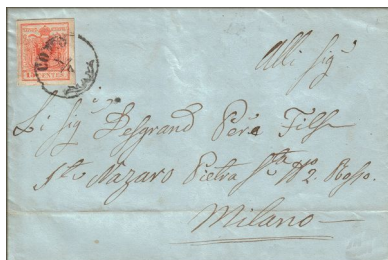 COMO
15 CENTES
Alli Sigri
Li Sigri Desgrand Père Fils
Sta Nazaro Pietra Sta No 2 Rosso.
Milano